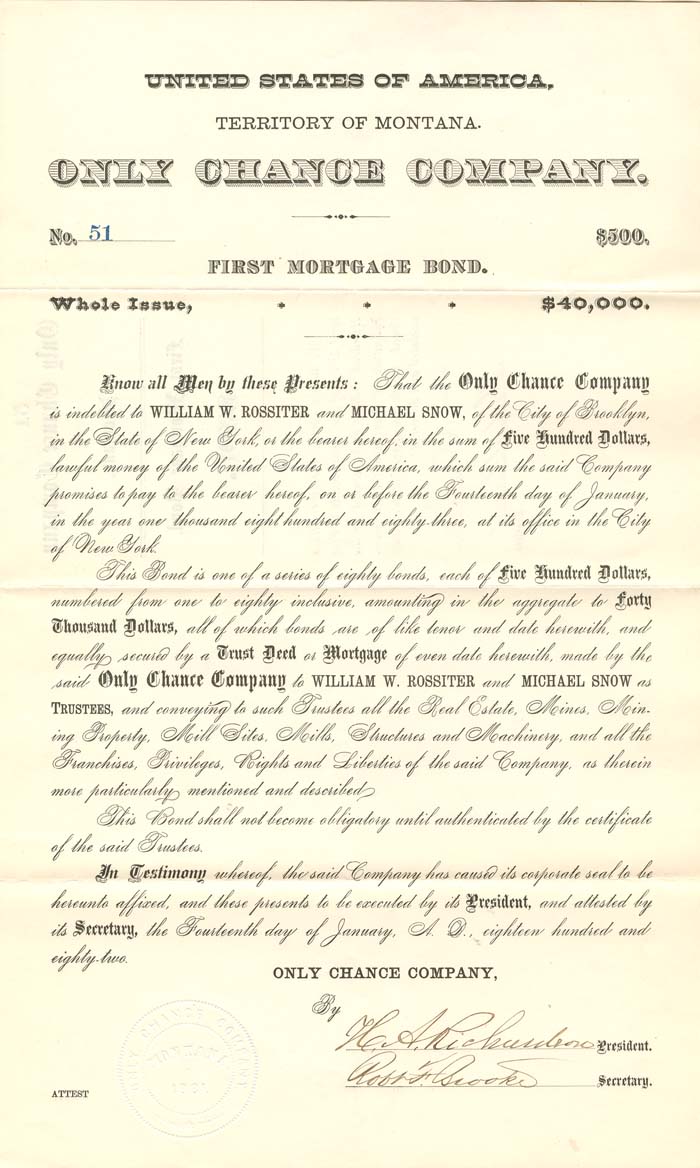 UNITED STATES OF AMERICA,
TERRITORY OF MONTANA.
ONLY CHANCE COMPANY.
No. 51 $500.
FIRST MORTGAGE BOND.
Whole Issue, * * * $40,000.
Know all Men by these Presents: That the Only Chance Company
is indebted to WILLIAM W. ROSSITER and MICHAEL SNOW, of the City of Brooklyn,
in the State of New York, or the bearer hereof, in the sum of Five Hundred Dollars,
lawful money of the United States of America, which sum the said Company
promises to pay to the bearer hereof, on or before the Fourteenth day of January,
in the year one thousand eight hundred and eighty-three, at its office in the City
of New York.
This Bond is one of a series of eighty bonds, each of Five Hundred Dollars,
numbered from one to eighty inclusive, amounting in the aggregate to Forty
Thousand Dollars, all of which bonds are of like tenor and date herewith, and
equally secured by a Trust Deed or Mortgage of even date herewith, made by the
said Only Chance Company to WILLIAM W. ROSSITER and MICHAEL SNOW as
TRUSTEES, and conveying to such Trustees all the Real Estate, Mines, Min-
ing Property, Mill Sites, Mills, Structures and Machinery, and all the
Franchises, Privileges, Rights and Liberties of the said Company, as therein
more particularly mentioned and described
This Bond shall not become obligatory until authenticated by the certificate
of the said Trustees.
In Testimony whereof, the said Company has caused its corporate seal to be
hereunto affixed, and these presents to be executed by its President, and attested by
its Secretary, the Fourteenth day of January, A. D., eighteen hundred and
eighty-two.
ONLY CHANCE COMPANY,
By
H. A. Richardson President.
Robt F. Brooke Secretary.
ATTEST
CHANCE COMPANY